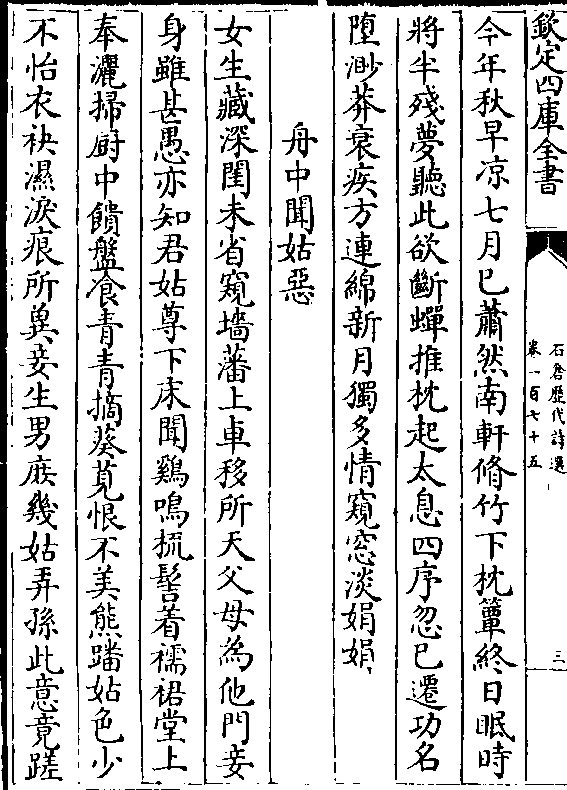 欽定四庫全書
石倉歷代詩選
卷一百七十五
三
今年秋早凉七月已蕭然南軒脩竹下枕簟終日眠時
將半殘夢聽此欲斷蟬推枕起太息四序忽已遷功名
堕渺莽衰疾方連綿新月獨多情窺窓淡娟娟
舟中聞姑惡
女生藏深閨未省窺墻藩上車移所天父母為他門妾
身雖甚愚亦知君姑尊下床聞鷄鳴梳髻着襦裙堂上
奉灑掃厨中饋盤飧青青摘葵莧恨不美熊蹯姑色少
不怡衣袂濕淚痕所兾妾生男庶幾姑弄孫此意竟蹉